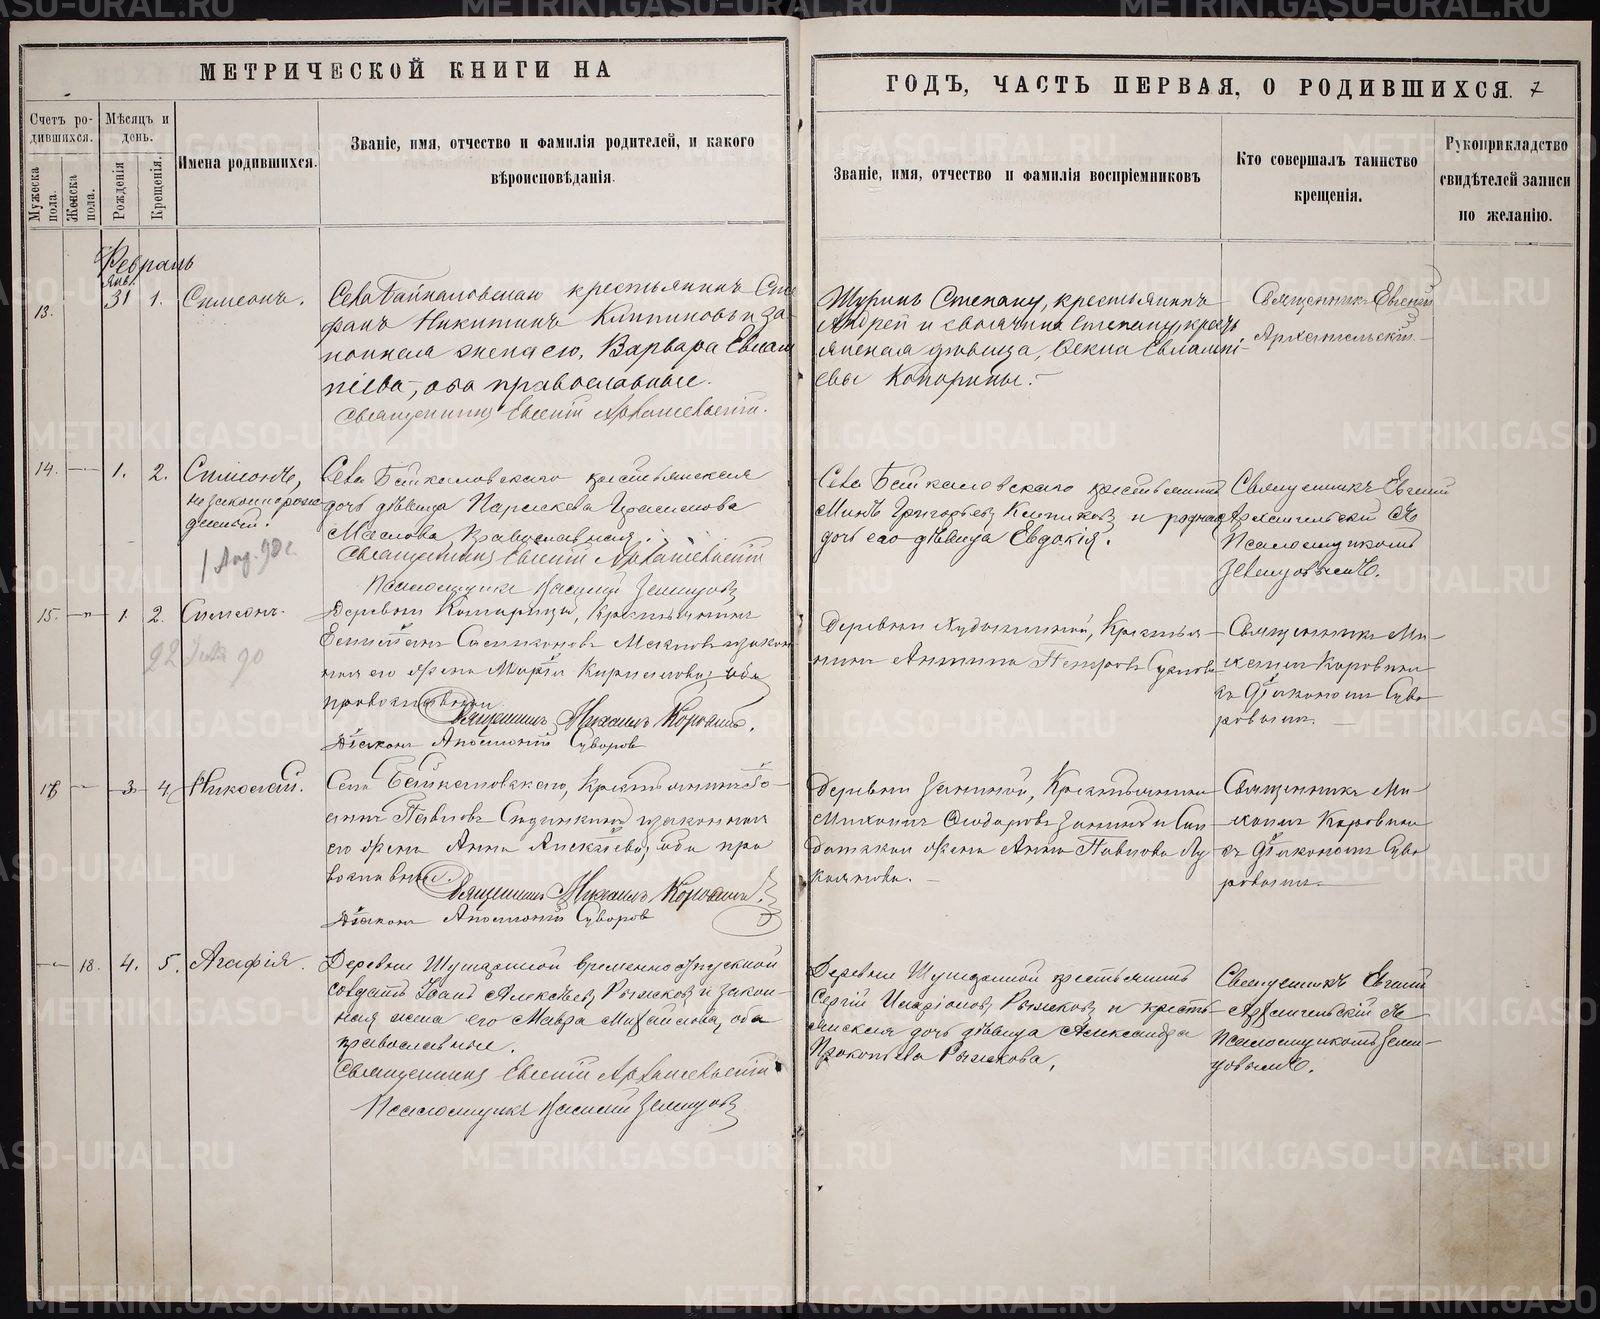 МЕТРИЧЕСКОЙ КНИГИ НА
ГОДЪ, ЧАСТЬ ПЕРВАЯ, О РОДИВШИХСЯ. 7
Счетъ родившихся.
Мужеска пола.
Женска пола.
Мѣсяцъ и день.
Рожденія
Крещенія.
Имена родившихся.
Званіе, имя, отчество и фамилія родителей, и какого
вѣроисповѣданія.
Званіе, имя, отчество и фамилія воспріемниковъ
Кто совершалъ таинство
крещенія.
Рукоприкладство
свидѣтелей записи
по желанію.
Февраль
13. Янв. 31 1. Симеонъ.
Села Байкаловскаго крестьянинъ Сте
фанъ Никитинъ и за-
конная жена его, Варвара Евлам
піева, оба православные.
Священникъ Евгеній Архангельскій.
Шуринъ Стефану, крестьянинъ
Андрей и своячина Стефану, кресть
янская дѣвица, Ѳекла Евлампі-
евы
Священникъ Евгеній
Архангельскій.
14. 1. 2. Симеонъ,
незаконнорож
денный.
Села Байкаловскаго крестьянская
дочь дѣвица Параскева
православная.
Священникъ Евгеній Архангельскій
Псаломщикъ Василій Земляновъ
Села Байкаловскаго крестьянинъ
Григорьевъ и родная
дочь его дѣвица Евдокія.
Священникъ Евгеній
Архангельскій съ
Псаломщикомъ
15. 1. 2. Симеонъ.
Деревни крестьянинъ
и закон
ная его жена Марѳа Кириллова; оба
православные
Священникъ Михаилъ Коровинъ.
Діаконъ Аполлоній Суворовъ
Деревни Крестья-
нинъ Антипа Петровъ
Священникъ Ми-
хаилъ Коровинъ
съ Діакономъ Суво-
ровымъ.
17 3 4 Николай.
Села Байкаловскаго, Крестьянинъ Іо-
аннъ Павловъ и законная
его жена Анна Алексѣева; оба пра
вославные.
Священникъ Михаилъ Коровинъ.
Діаконъ Аполлоній Суворовъ
Деревни Зининой, Крестьянинъ
Михаилъ Ѳеодоровъ Зининъ и Сол
датская жена Анна Павлова Лу
Священникъ Ми-
хаилъ Коровинъ
съ Діакономъ Суво
ровымъ.
18. 4. 5. Агафія.
Деревни временно отпускной
солдатъ Іоаннъ Алексѣевъ Рыжковъ и закон-
ная жена его Мавра Михайлова, оба
православные.
Священникъ Евгеній Архангельскій
Псаломщикъ Василій Земляновъ
Деревни крестьянинъ
Сергій Иларіоновъ Рыжковъ и кресть
янская дочь дѣвица Александра
Прокопьева Рыжкова.
Священникъ Евгеній
Архангельскій съ
Псаломщикомъ
METRIKI.GASO-URAL.RU